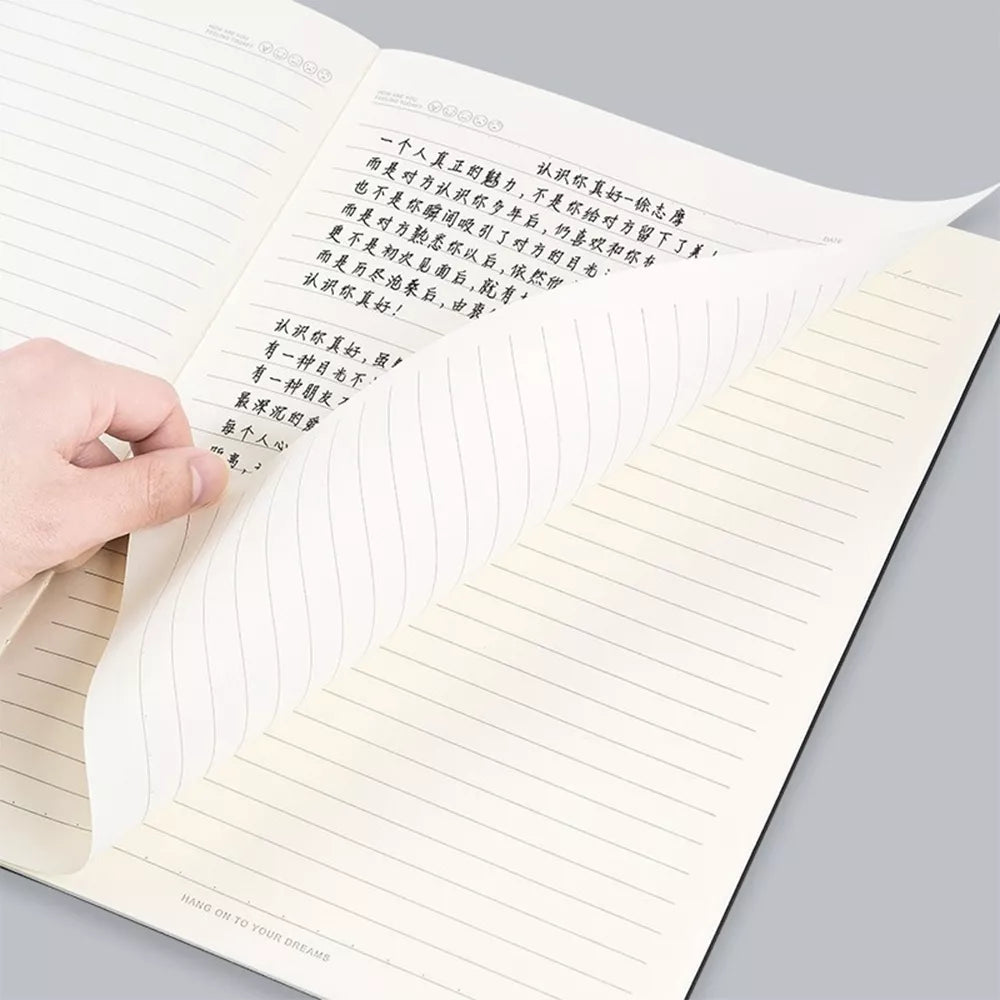 HOW ARE YOU
FEELING TODAY?
HOW ARE YOU
FEELING TODAY?
DATE
认识你真好—徐志摩
一个人真正的魅力，不是你给对方留下了美
而是对方认识你多年后，仍喜欢和你在
也不是你瞬间吸引了对方的目光；
而是对方熟悉你以后，依然欣
更不是初次见面后，就有
而是历尽沧桑后，由衷
认识你真好！
认识你真好，虽然
有一种目光不
有一种朋友不
最深沉的爱
每个人心
距离，
HANG ON TO YOUR DREAMS